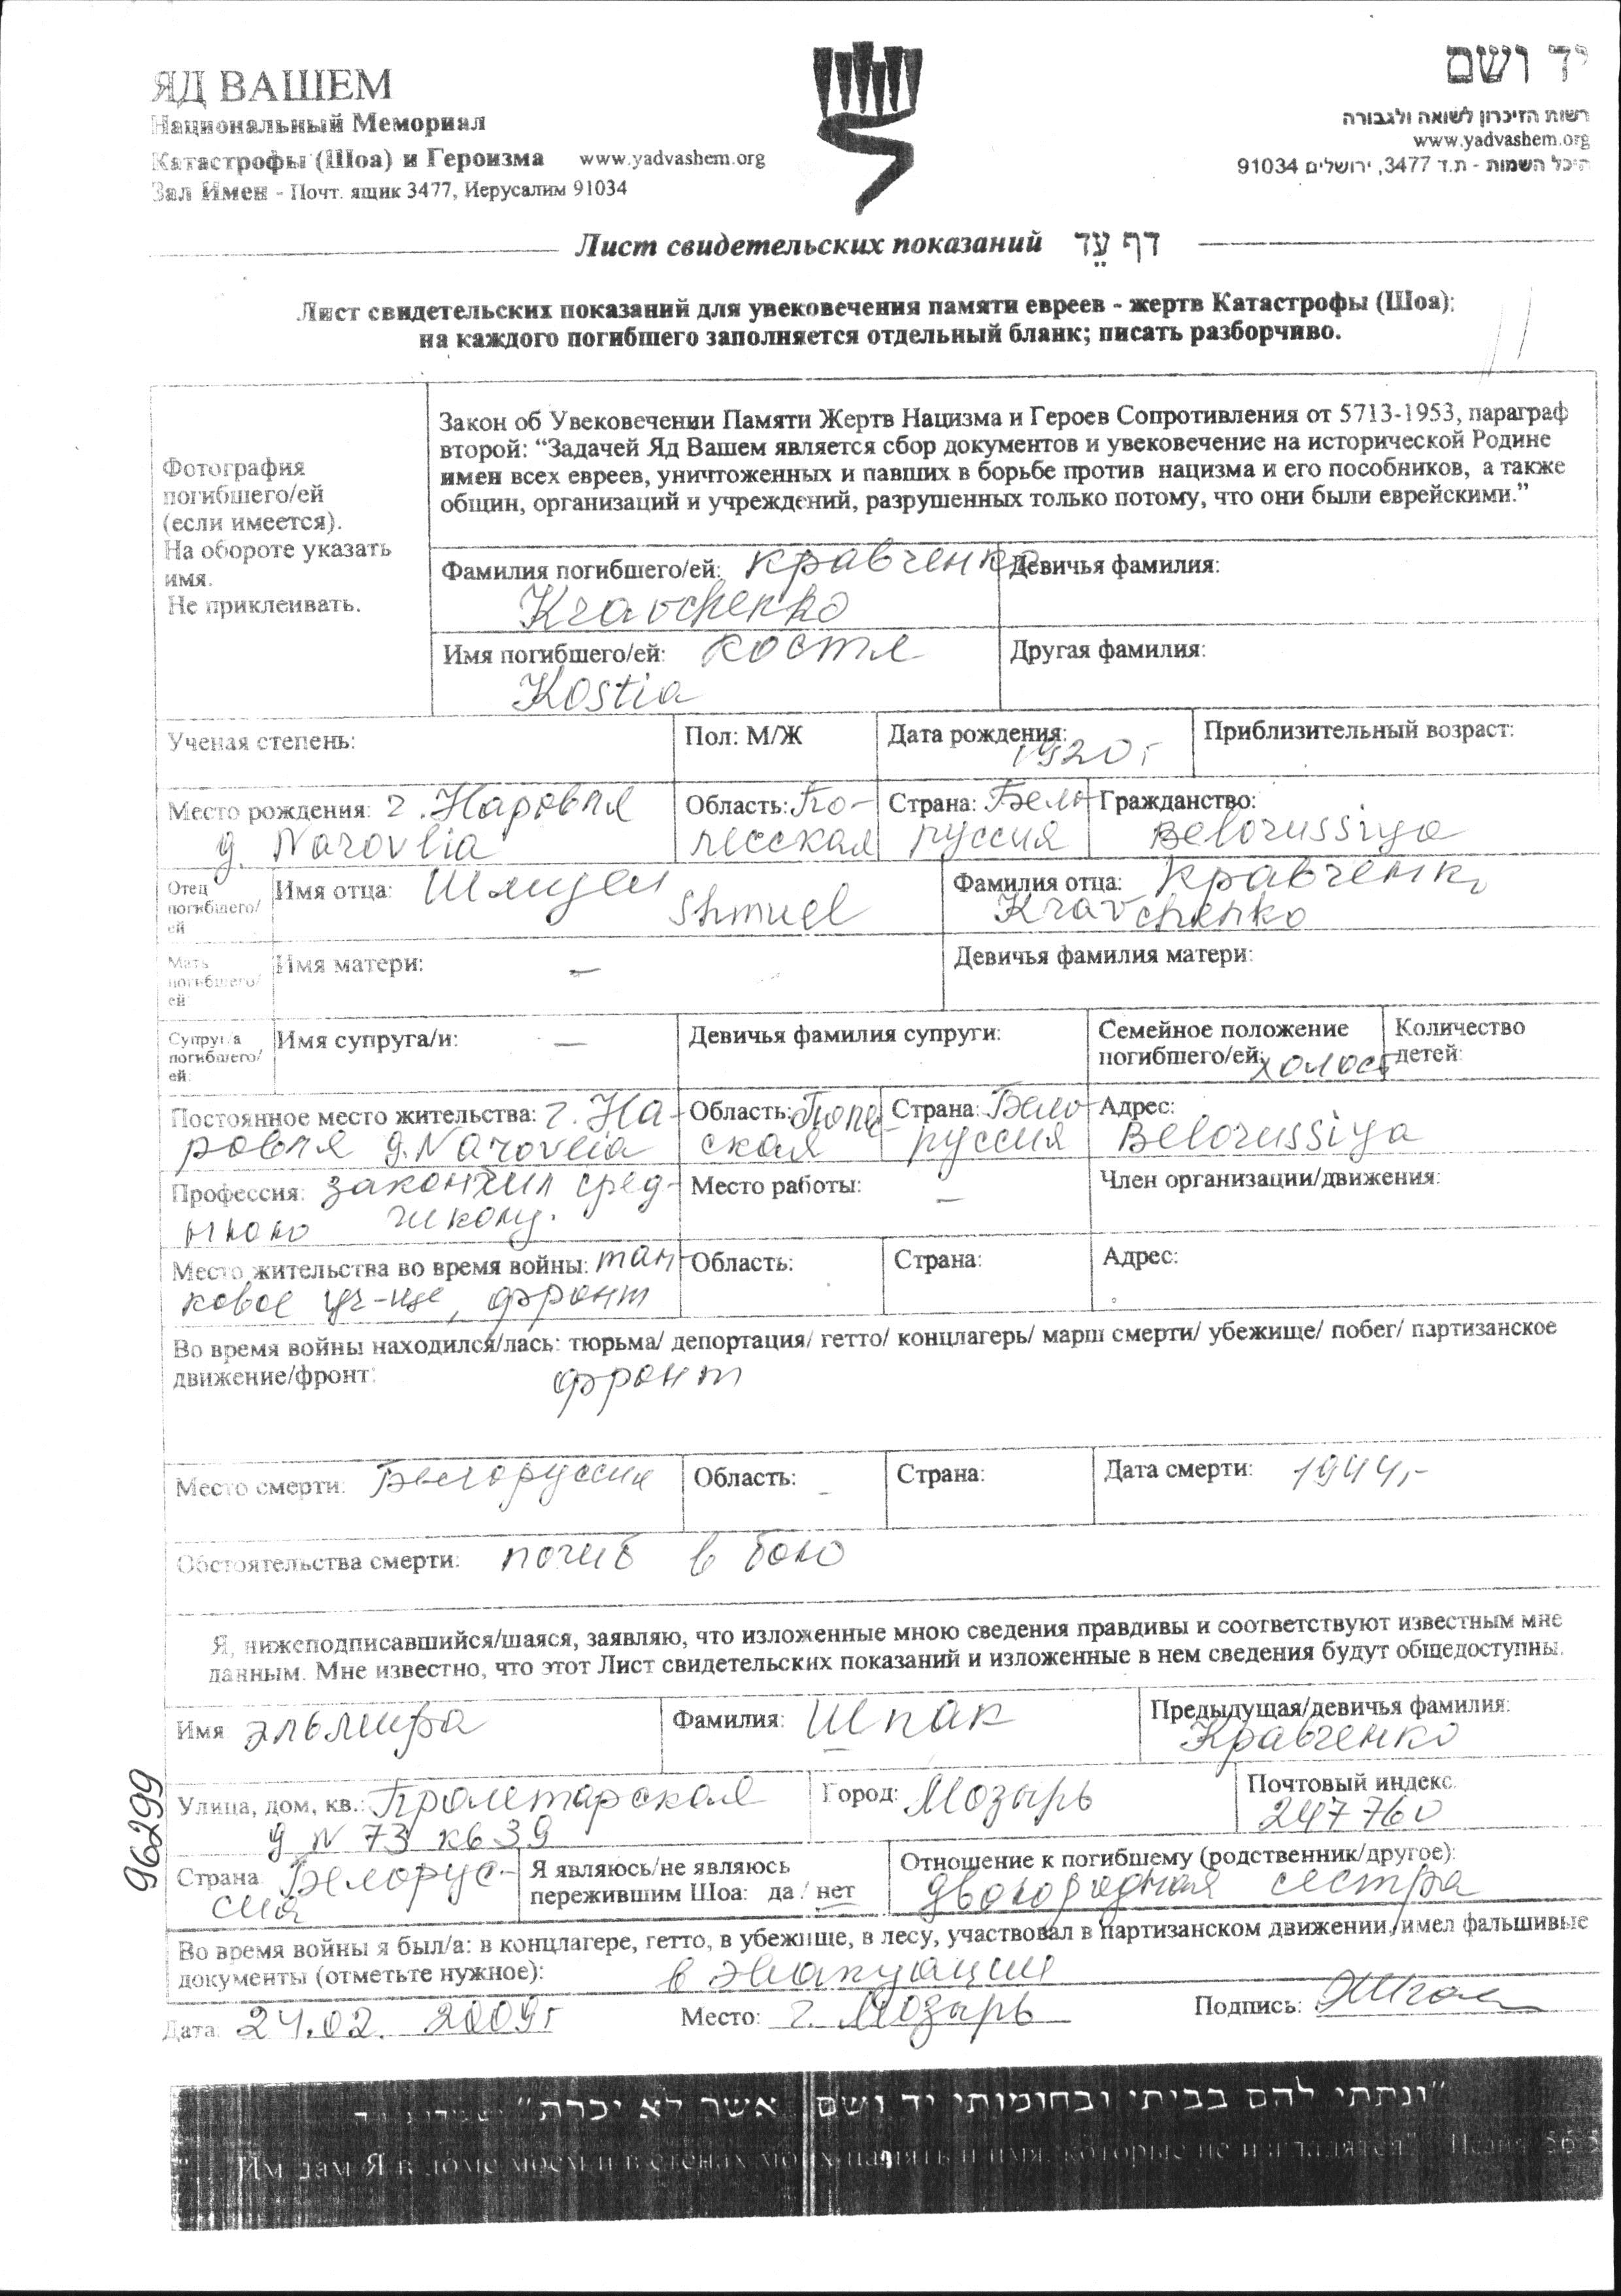 ЯД ВАШЕМ
Национальный Мемориал
Катастрофы (Шоа) и Героизма www.yadvashem.org
Зал Имен - Почт. ящик 3477, Иерусалим 91034
יד ושם
רשות הזיכרון לשואה ולגבורה
www.yadvashem.org
היכל השמות - ת.ד 3477, ירושלים 91034
Лист свидетельских показаний דף עֵד
Лист свидетельских показаний для увековечения памяти евреев - жертв Катастрофы (Шоа);
на каждого погибшего заполняется отдельный бланк; писать разборчиво.
Фотография
погибшего/ей
(если имеется).
На обороте указать
имя.
Не приклеивать.
Закон об Увековечении Памяти Жертв Нацизма и Героев Сопротивления от 5713-1953, параграф
второй: “Задачей Яд Вашем является сбор документов и увековечение на исторической Родине
имен всех евреев, уничтоженных и павших в борьбе против нацизма и его пособников, а также
общин, организаций и учреждений, разрушенных только потому, что они были еврейскими.”
Фамилия погибшего/ей: Кравченко
Kravchenko
Девичья фамилия:
Имя погибшего/ей: Костя
Kostia
Другая фамилия:
Ученая степень:
Пол: М/Ж
Дата рождения: 1920 г
Приблизительный возраст:
Место рождения: г. Наровля
g. Narovlia
Область: По-
лесская
Страна: Бело-
руссия
Гражданство:
Belorussiya
Отец
погибшего/
ей
Имя отца: Шмуел Shmuel
Фамилия отца: Кравченко
Kravchenko
Мать
погибшего/
ей
Имя матери: —
Девичья фамилия матери:
Супруг/а
погибшего/
ей:
Имя супруга/и: —
Девичья фамилия супруги:
Семейное положение
погибшего/ей: холост
Количество
детей:
Постоянное место жительства: г. На-
ровля g. Narovlia
Область: Полес-
ская
Страна: Бело-
руссия
Адрес:
Belorussiya
Профессия: закончил сред-
нюю школу.
Место работы: —
Член организации/движения:
Место жительства во время войны: тан-
ковое уч-ще, фронт
Область:
Страна:
Адрес:
Во время войны находился/лась: тюрьма/ депортация/ гетто/ концлагерь/ марш смерти/ убежище/ побег/ партизанское
движение/фронт: фронт
Место смерти: Белоруссия
Область: -
Страна:
Дата смерти: 1944 г
Обстоятельства смерти: погиб в бою
Я, нижеподписавшийся/шаяся, заявляю, что изложенные мною сведения правдивы и соответствуют известным мне
данным. Мне известно, что этот Лист свидетельских показаний и изложенные в нем сведения будут общедоступны.
Имя Эльмира
Фамилия: Шпак
Предыдущая/девичья фамилия:
Кравченко
Улица, дом, кв.: Пролетарская
д N 73 кв 39
Город: Мозырь
Почтовый индекс:
247760
96299
Страна Белорус-
сия
Я являюсь/не являюсь
пережившим Шоа: да / нет
Отношение к погибшему (родственник/другое):
двоюродная сестра
Во время войны я был/а: в концлагере, гетто, в убежище, в лесу, участвовал в партизанском движении, имел фальшивые
документы (отметьте нужное): в эвакуации
Дата: 24.02. 2009г Место: г. Мозырь Подпись:
"ונתתי להם בביתי ובחומותי יד ושם אשר לא יכרת"
"... Им дам Я в доме моем и в стенах моих память и имя, которые не изгладятся" Исайя 56:5